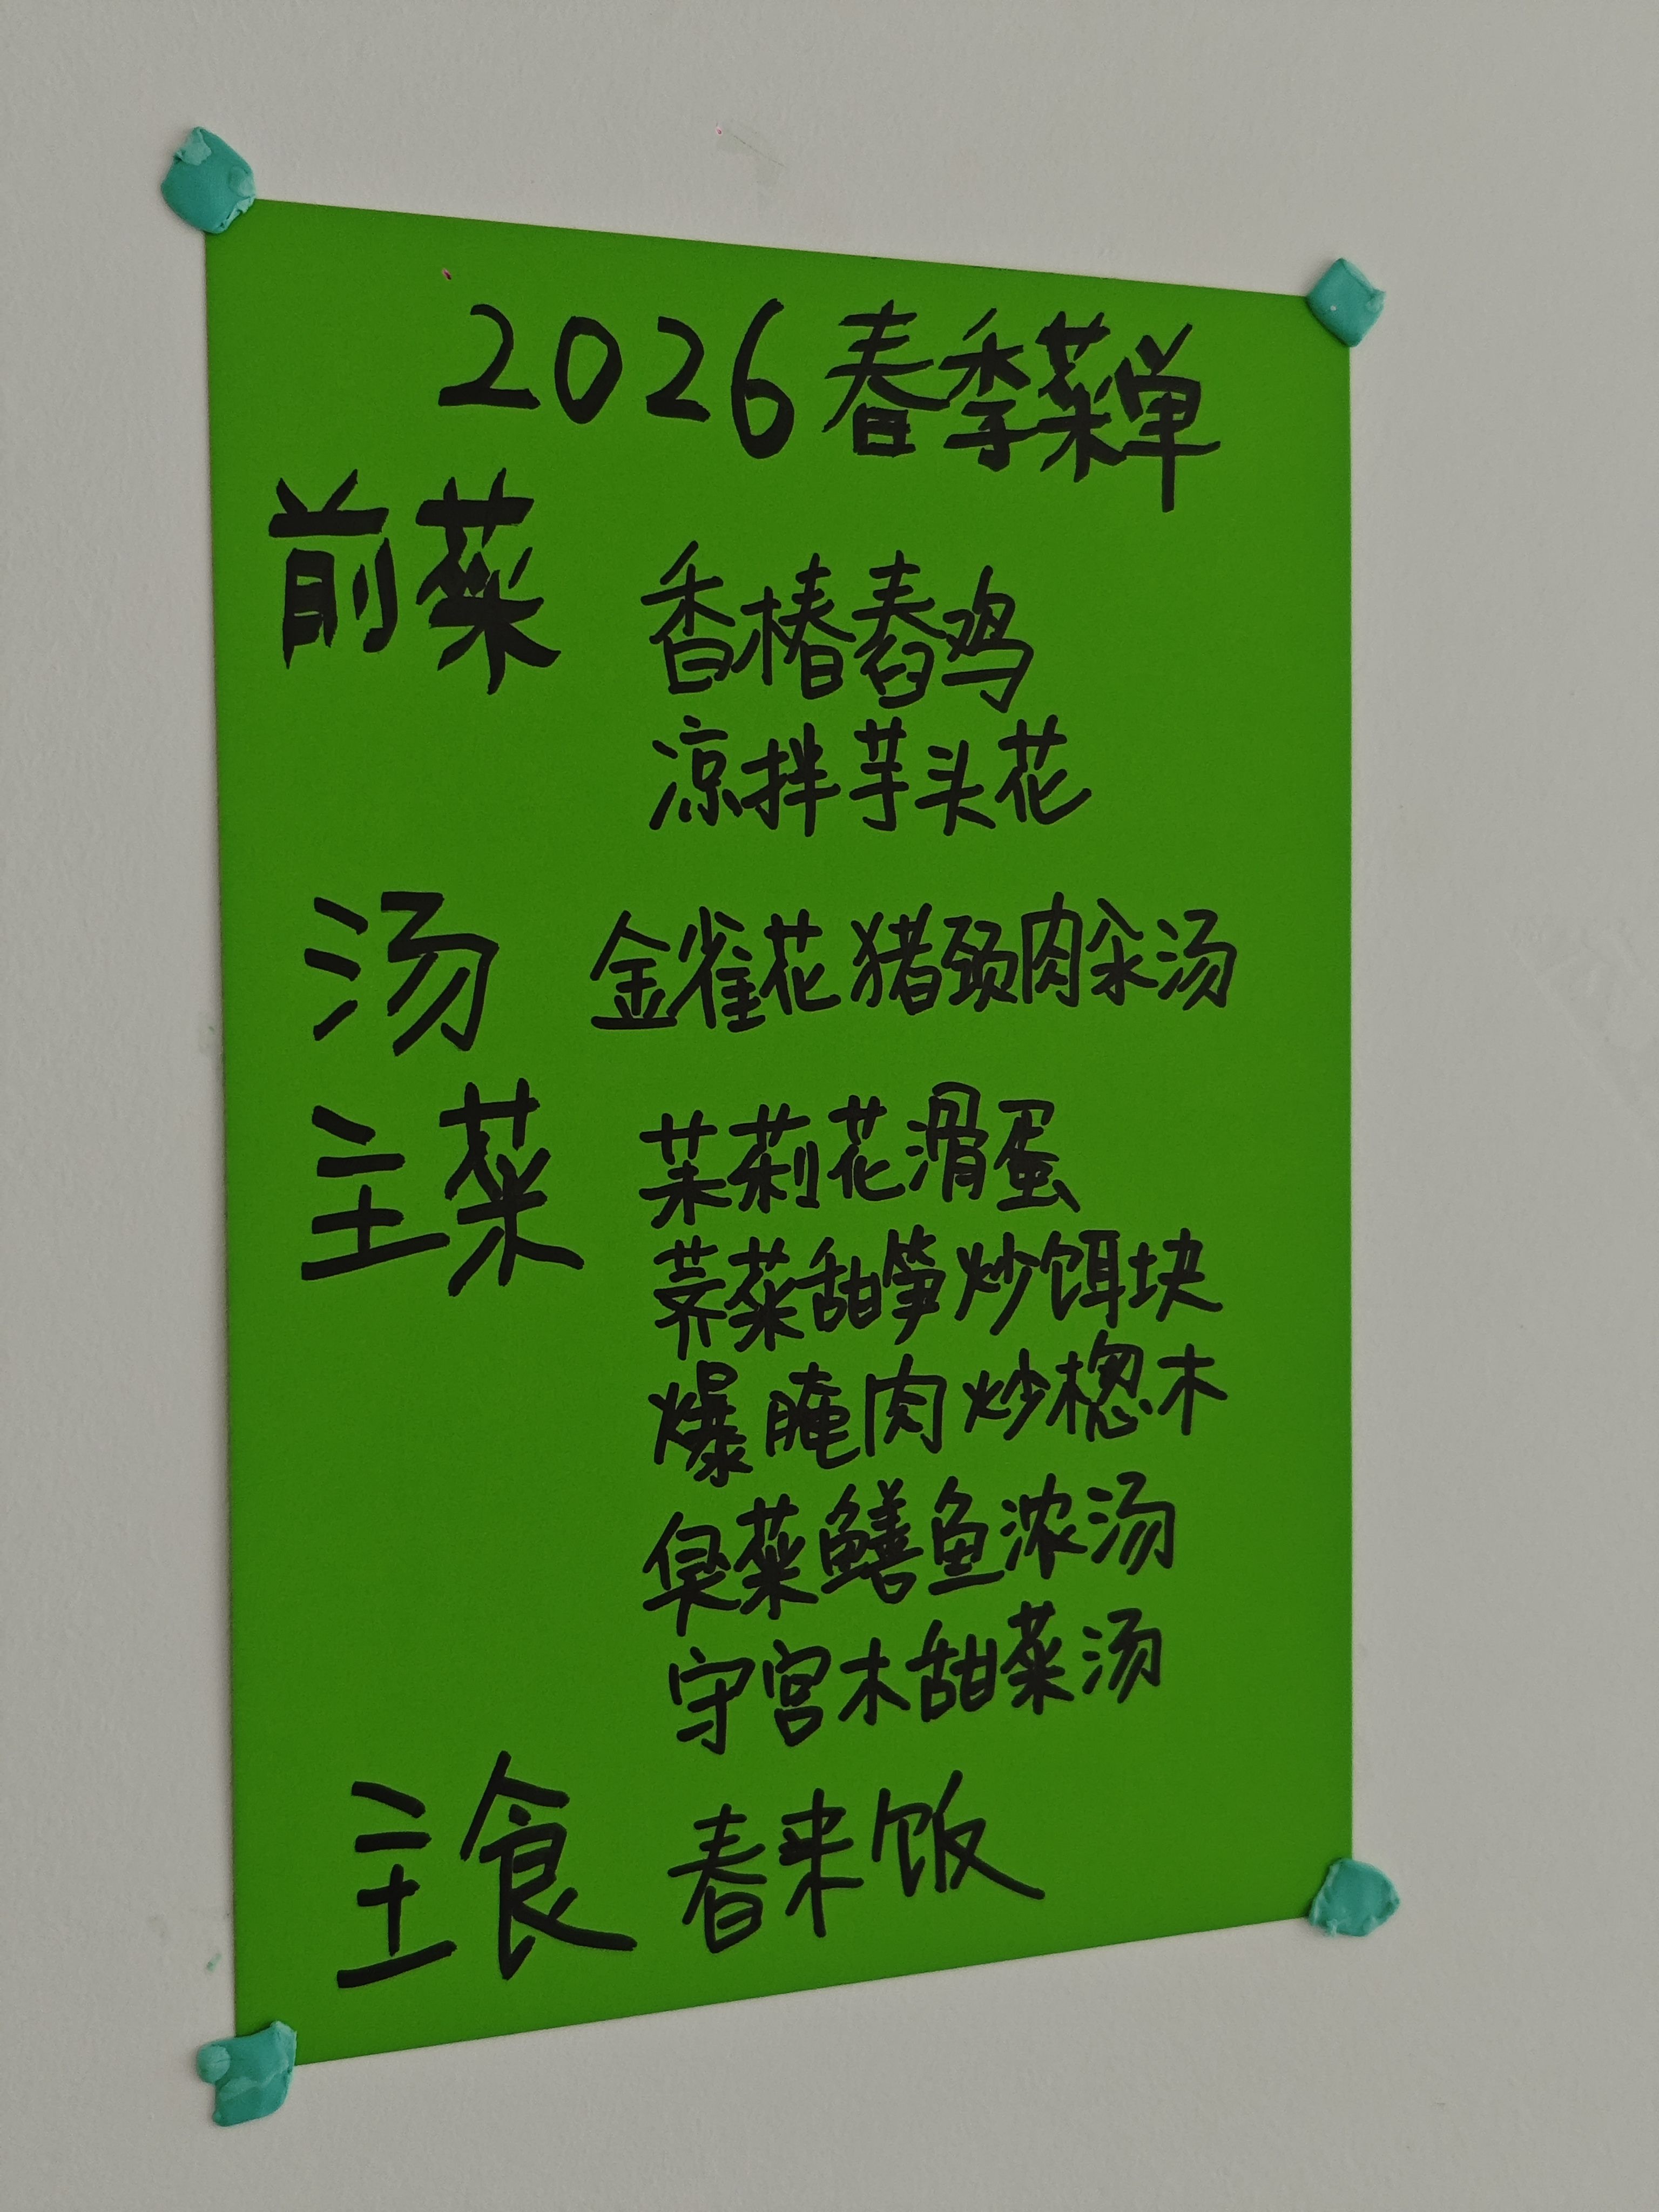 2026春季菜单
前菜 香椿舂鸡
凉拌芋头花
汤 金雀花猪颈肉汆汤
主菜 茉莉花滑蛋
荠菜甜笋炒饵块
爆腌肉炒楤木
菜鳝鱼浓汤
守宫木甜菜汤
主食 春来饭